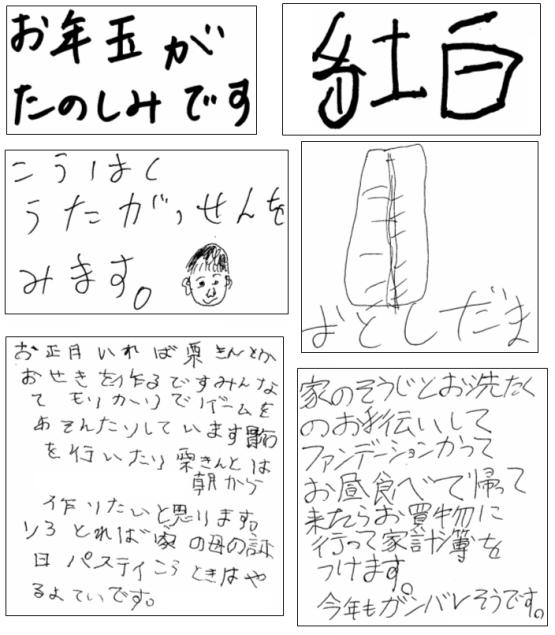 お年玉が
たのしみです
紅白
こうはく
うたがっせんを
みます。
おとしだま
お正月いれば栗きんとか
おせきを作るですみんな
てモリカーリでゲームを
あそんたりしています
を行いたり栗きんとは
朝から
作りたいと思ります。
とれば家の母の
日パスティこうときはや
るよていです。
家のそうじとお洗たく
のお手伝いして
ファンデーションかって
お昼食べて帰って
来たらお買物に
行って家計簿を
つけます。
今年もガンバレそうです。